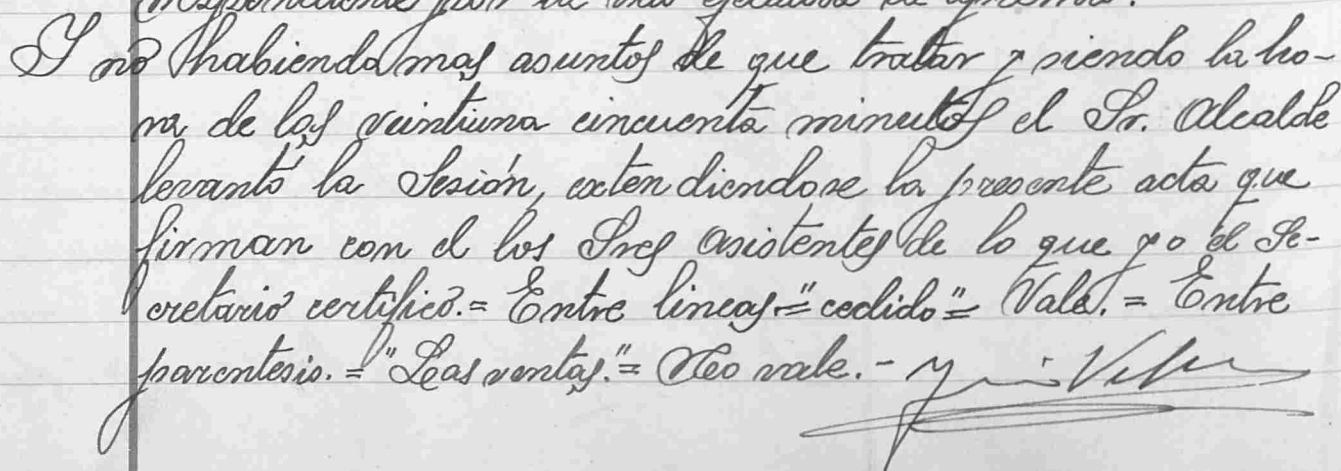 Y no habiendo mas asuntos de que tratar y siendo la ho-
ra de las veintiuna cincuenta minutos el Sr. Alcalde
levantó la Sesión, extendiendose la presente acta que
firman con el los Sres asistentes de lo que yo el Se-
cretario certifico.= Entre lineas="cedido"= Vale.= Entre
parentesis.="Las ventas."= No vale.-